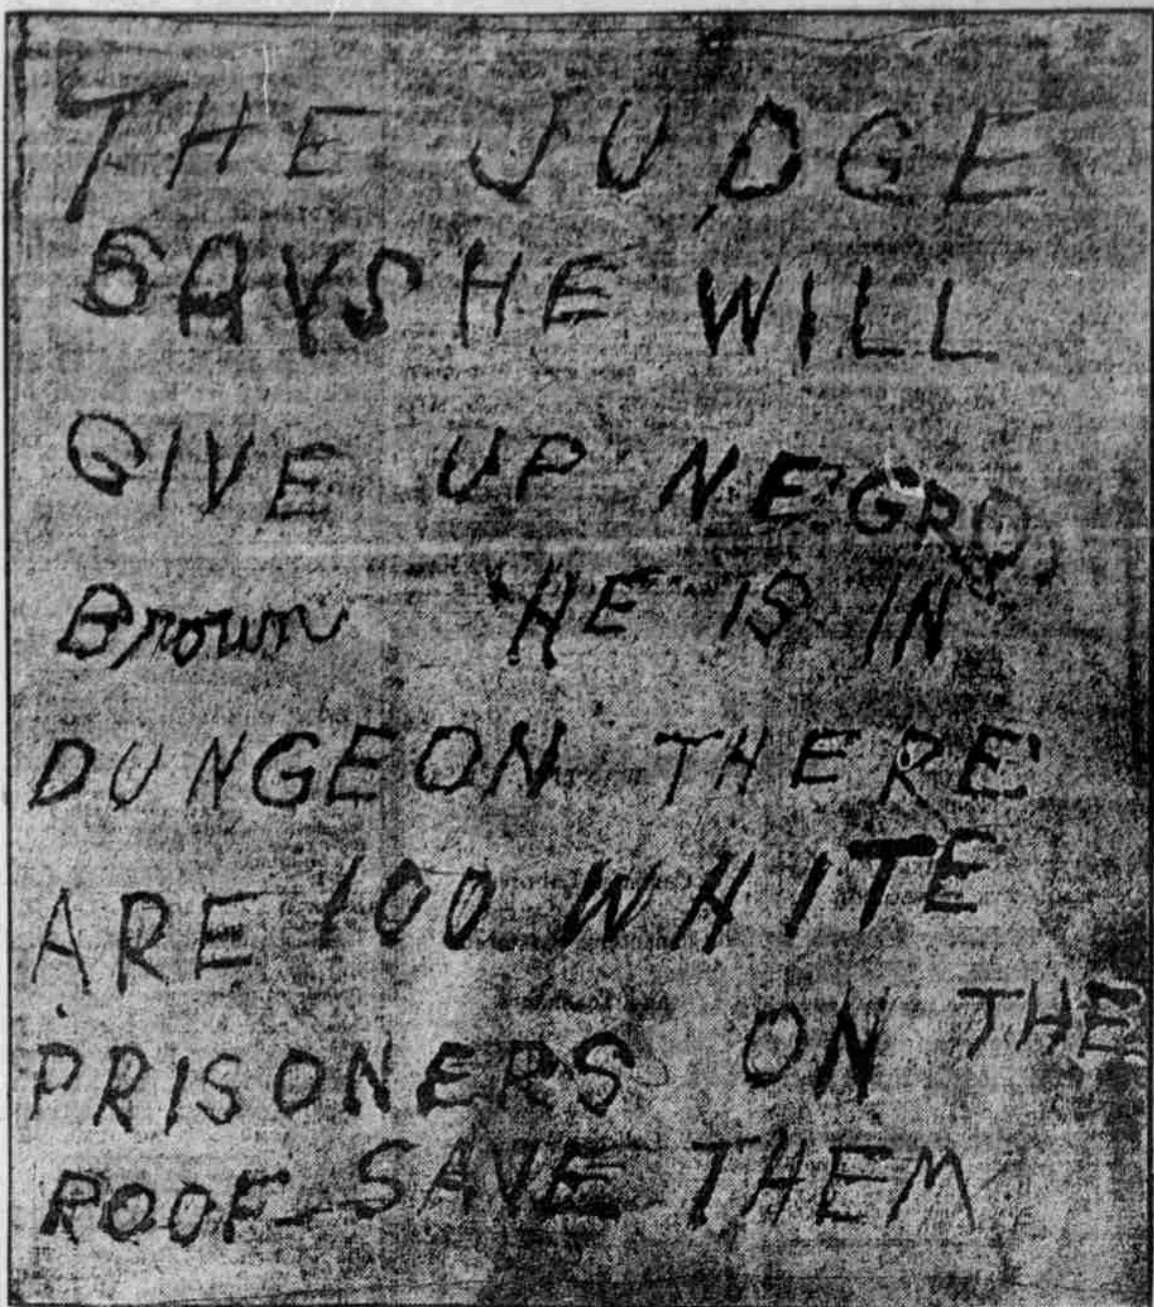 THE JUDGE
SAYS HE WILL
GIVE UP NEGRO,
Brown HE IS IN
DUNGEON THERE
ARE 100 WHITE
PRISONERS ON THE
ROOF SAVE THEM